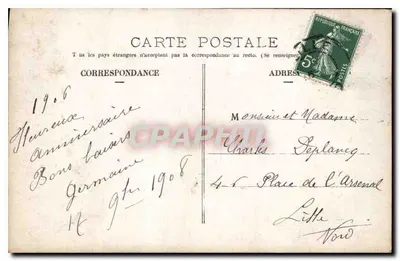 CARTE POSTALE
Tous les pays étrangers n'acceptent pas la correspondance au recto. (Se renseigner
CORRESPONDANCE
ADRES
REPUBLIQUE FRANÇAISE
5c
POSTES
1908
Heureux
anniversaire
Bons baisers
Germaine
17 9bre 1908
Monsieur et Madame
Charles Deplancq
46 Place de l'Arsenal
Lille
Nord
CPARAMA